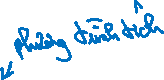 phương trình tích